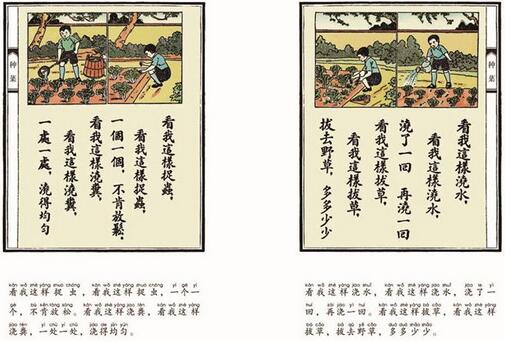 种菜
看我這樣捉蟲,
看我這樣捉蟲,
一個一個,不肯放鬆。
看我這樣澆糞,
看我這樣澆糞,
一處一處,澆得均勻
kàn wǒ zhè yàng zhuō chóng kàn wǒ zhè yàng zhuō chóng yí gè yí
看我这样捉虫,看我这样捉虫,一个一
gè bù kěn fàng sōng kàn wǒ zhè yàng jiāo fèn kàn wǒ zhè yàng
个,不肯放松。看我这样浇粪,看我这样
jiāo fèn yí chù yí chù jiāo de jūn yún
浇粪,一处一处,浇得均匀。
种菜
看我這樣澆水,
看我這樣澆水,
澆了一回 再澆一回
看我這樣拔草,
看我這樣拔草,
拔去野草,多多少少
kàn wǒ zhè yàng jiāo shuǐ kàn wǒ zhè yàng jiāo shuǐ jiāo le yì
看我这样浇水,看我这样浇水,浇了一
huí zài jiāo yì huí kàn wǒ zhè yàng bá cǎo kàn wǒ zhè yàng
回,再浇一回。看我这样拔草,看我这样
bá cǎo bá qù yě cǎo duō duō shǎo shǎo
拔草,拔去野草,多多少少。